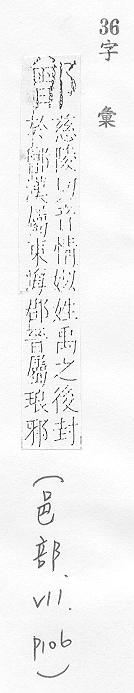 36
字彙
鄫
慈陵切音情姒姓禹之後封
於鄫漢屬東海郡晉屬琅邪
(邑部. VII. p10b)